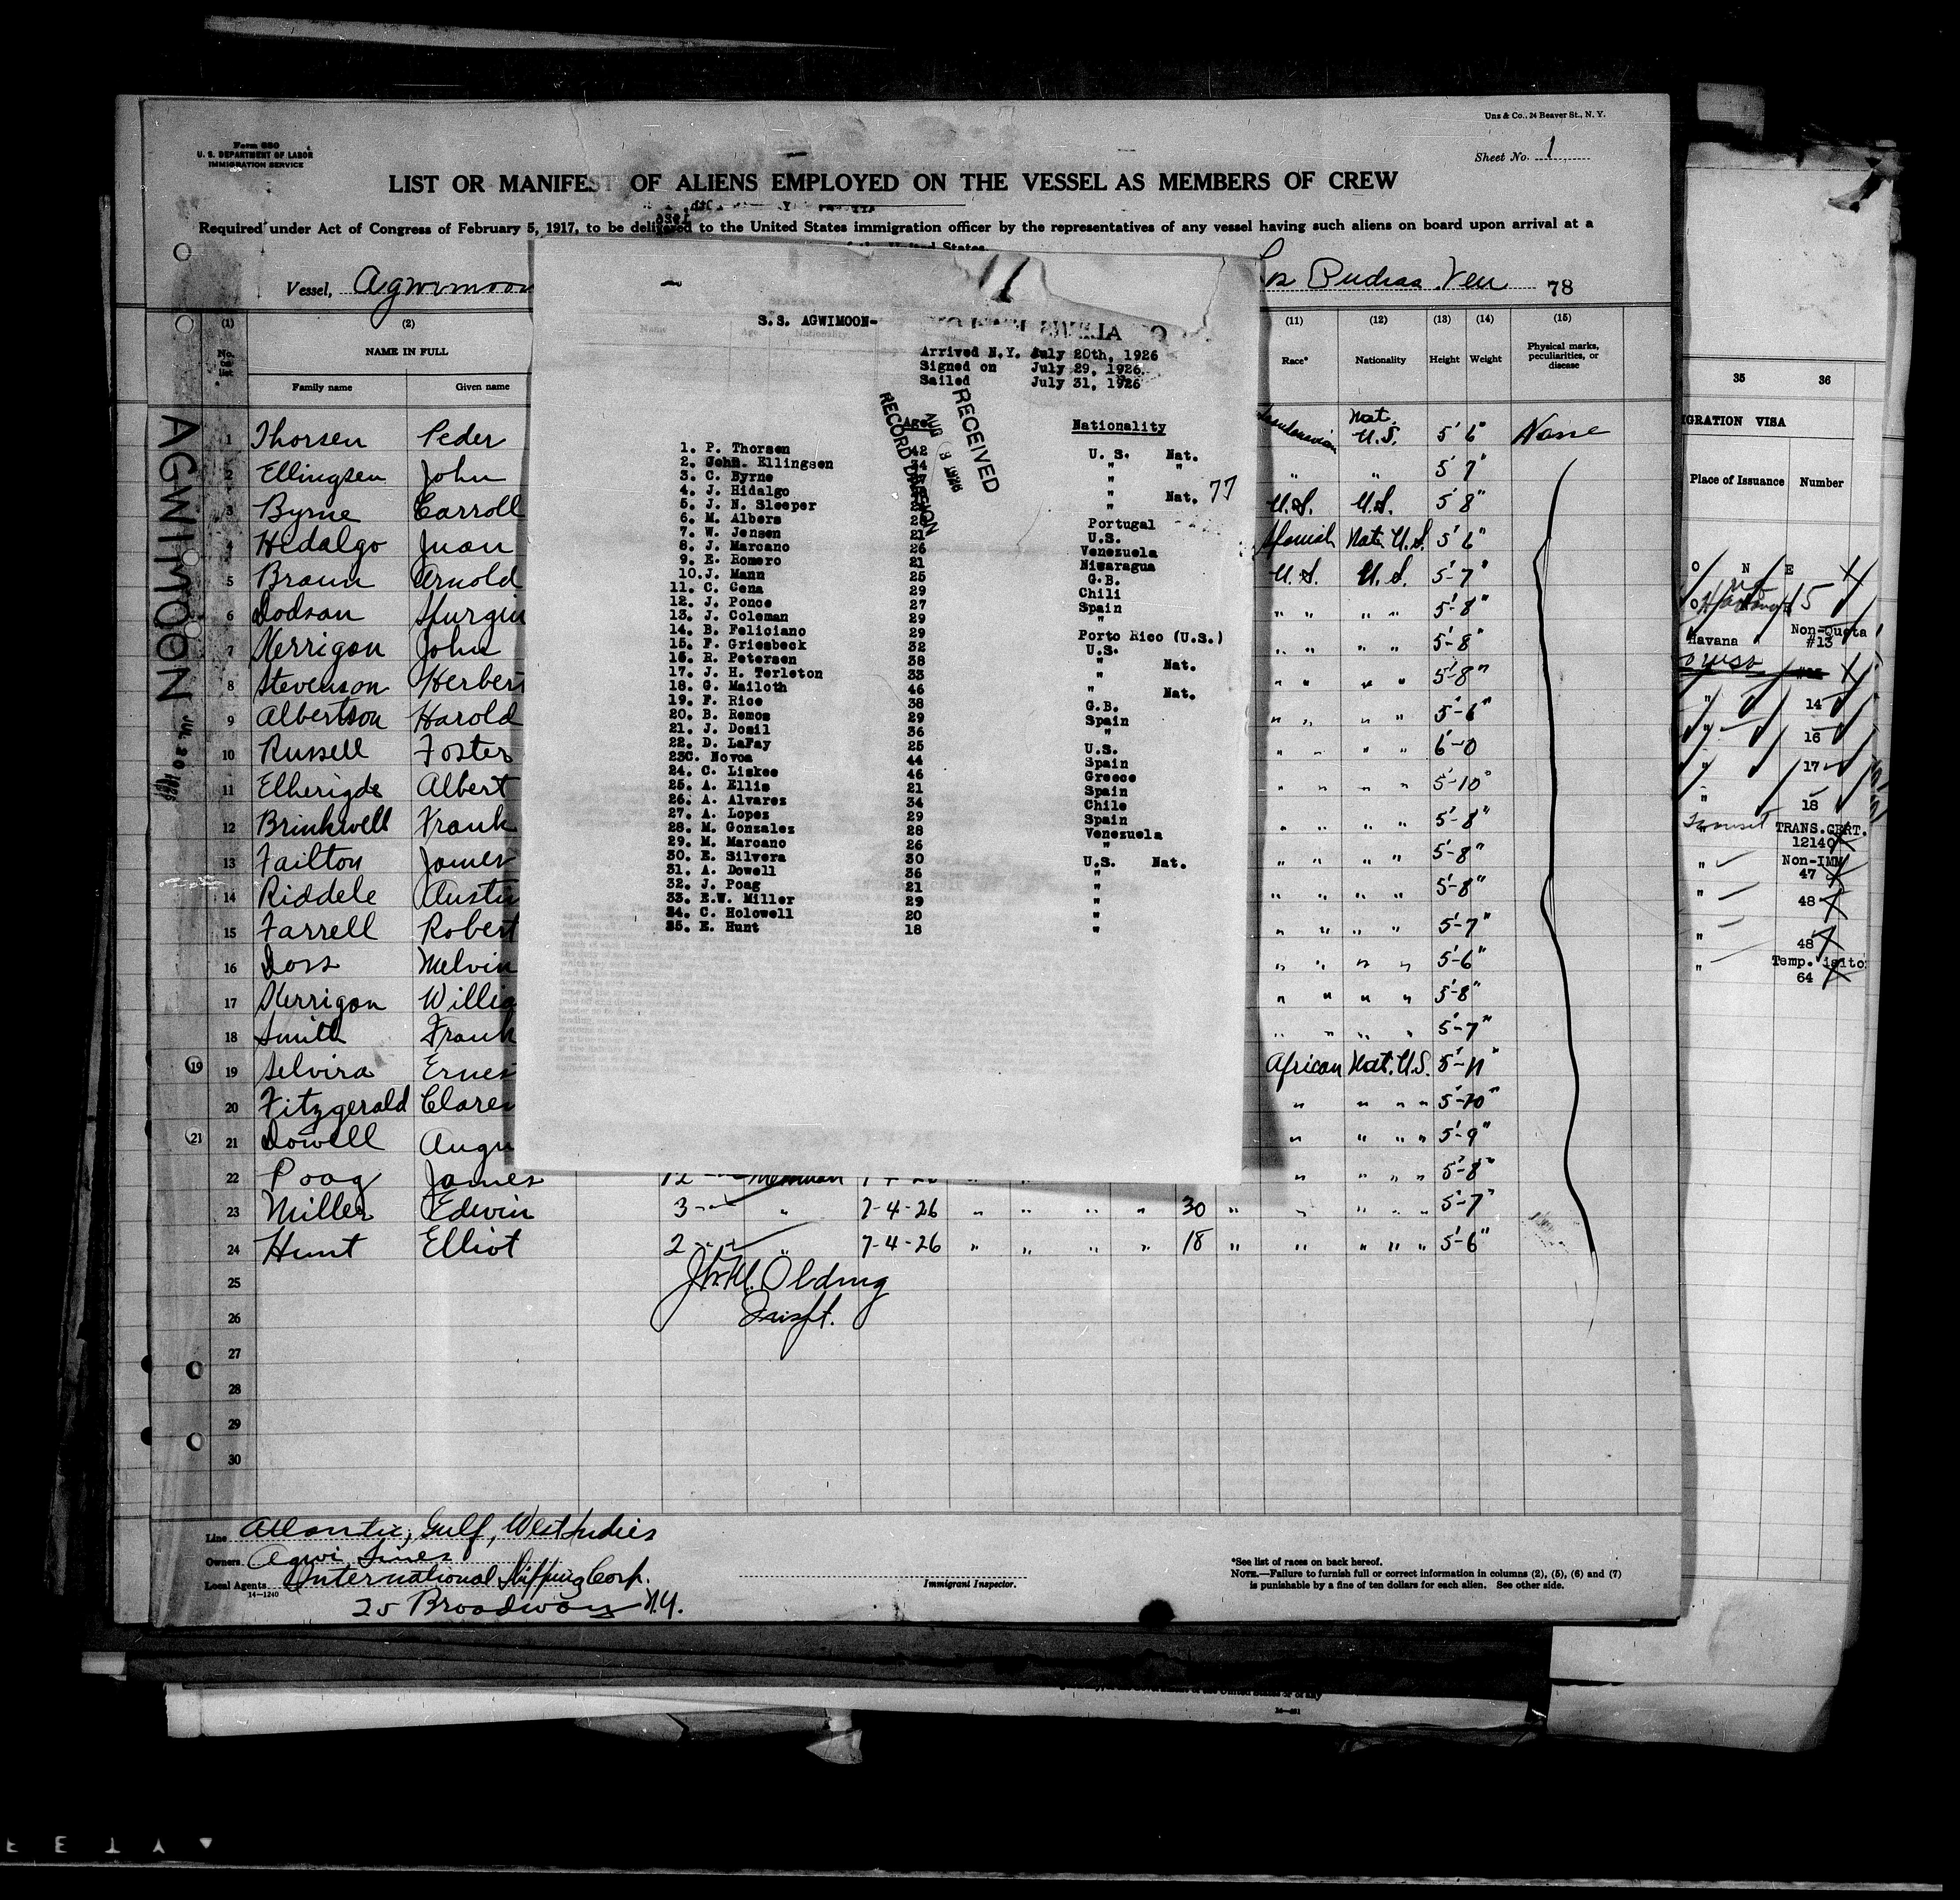 Uns & Co., 24 Beaver St., N. Y.
Form 680
U. S. DEPARTMENT OF LABOR
IMMIGRATION SERVICE
Sheet No. 1
LIST OR MANIFEST OF ALIENS EMPLOYED ON THE VESSEL AS MEMBERS OF CREW
Required under Act of Congress of February 5, 1917, to be delivered to the United States immigration officer by the representatives of any vessel having such aliens on board upon arrival at a
Vessel, Agwimoon
78
AGWIMOON
(1) (2)
NAME IN FULL
Family name Given name
(11) (12) (13) (14) (15)
Race* Nationality Height Weight Physical marks, peculiarities, or disease
1 Thorsen Peder Nat. U.S. 5' 6" None
2 Ellingsen John " " 5' 7"
3 Byrne Carroll U.S. U.S. 5' 8"
4 Hidalgo Juan Spanish Nat. U.S. 5' 6"
5 Braun Arnold U.S. U.S. 5-7"
6 Dodson " " " " 5-8"
7 Kerrigan John " " " " 5-8"
8 Stevenson Herber " " " " 5-8"
9 Albertson Harold " " " " 5-6"
10 Russell Foster " " 6-0
11 Albert " " " " 5-10"
12 Brinkwell Frank " " " " 5-8"
13 Failton James " " " " 5-8"
14 Riddele Austi " " " " 5-8"
15 Farrell Robert " " " " 5-7"
16 Doss Melvin " " " " 5-6"
17 Kerrigan Willia " " " " 5-8"
18 Smith Frank " " " " 5-7"
19 19 Selvira Ernes African Nat. U.S. 5-11"
20 Fitzgerald Claren " " " " 5-10"
21 21 Dowell Augu " " " " 5-9"
22 Poag James 12 " " " " 5-8"
23 Miller Edwin 3 " 7-4-26 " " " " 30 " " " " " 5-7"
24 Hunt Elliot 2 " 7-4-26 " " " " 18 " " " " " 5-6"
25
26
27
28
29
30
S.S. AGWIMOON-
Arrived N.Y. July 20th, 1926
Signed on July 29, 1926.
Sailed July 31, 1926
RECEIVED
RECORD DIVISION
Age Nationality
1. P. Thorsen 42 U. S. Nat.
2. John. Ellingsen 34 " "
3. C. Byrne "
4. J. Hidalgo " Nat. 77
5. J. N. Sleeper "
6. M. Albers Portugal
7. W. Jensen 21 U.S.
8. J. Marcano 26 Venezuela
9. E. Romero 21 Nicaragua
10. J. Mann 25 G.B.
11. C. Cena 29 Chili
12. J. Ponce 27 Spain
13. J. Coleman 29 "
14. B. Feliciano 29 Porto Rico (U.S.)
15. F. Griesbeck 32 U.S.
16. R. Petersen 38 " Nat.
17. J. H. Terleton 33 "
18. G. Mailoth 46 " Nat.
19. F. Rice 38 G.B.
20. B. Remos 29 Spain
21. J. Dosil 36 "
22. D. LaFay 25 U.S.
23C. Novoa 44 Spain
24. C. Liskee 46 Greece
25. A. Ellis 21 Spain
26. A. Alvarez 34 Chile
27. A. Lopez 29 Spain
28. M. Gonzalez 28 Venezuela
29. M. Marcano 26 "
30. E. Silvera 30 U.S. Nat.
31. A. Dowell 36 "
32. J. Poag 21 "
33. E.W. Miller 29 "
34. C. Holowell 20 "
35. E. Hunt 18 "
35 36
IGRATION VISA
Place of Issuance Number
O N E
15
Havana Non-Quota #13
" 14
" 16
" 17
" 18
TRANS.CERT. 12140
" Non-IMM 47
" 48
" 48
" Temp. 64
Line Atlantic, Gulf, West Indies
Owners Agwi Lines
Local Agents International Shipping Corp.
14-1240
25 Broadway N.Y.
Immigrant Inspector.
*See list of races on back hereof.
NOTE.—Failure to furnish full or correct information in columns (2), (5), (6) and (7)
is punishable by a fine of ten dollars for each alien. See other side.